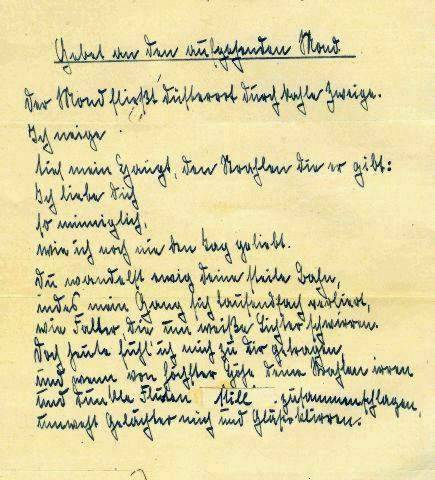 Gebet an den aufgehenden Mond
Der Mond fließt düsterrot durch kahle Zweige.
Ich neige
tief mein Haupt, den Strahlen die er gibt:
Ich liebe Dich
so minniglich,
wie ich noch nie den Tag geliebt.
Du wandelst ewig Deine steile Bahn,
indes mein Gang sich tausendfach verliert,
wie Falter die um weiße Lichter schwirren.
Doch heute fühl' ich mich zu Dir getragen,
und wenn von höchster Höhe Deine Strahlen irren
und dunkle Fluten still zusammenschlagen,
umweht Gelächter mich und Gläserklirren.